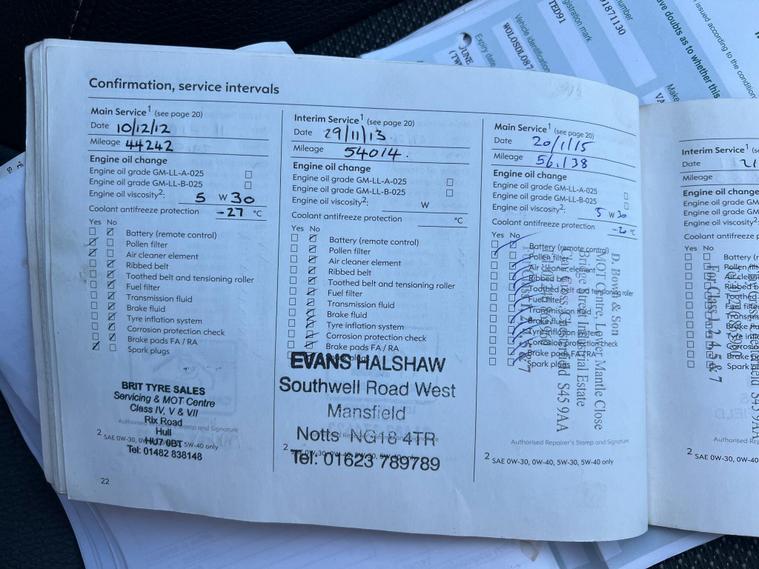 Confirmation, service intervals
Main Service1 (see page 20)
Date 10/12/12
Mileage 44242
Engine oil change
Engine oil grade GM-LL-A-025
Engine oil grade GM-LL-B-025
Engine oil viscosity2: 5 W 30
Coolant antifreeze protection -27 °C
Yes No
Battery (remote control)
Pollen filter
Air cleaner element
Ribbed belt
Toothed belt and tensioning roller
Fuel filter
Transmission fluid
Brake fluid
Tyre inflation system
Corrosion protection check
Brake pads FA / RA
Spark plugs
BRIT TYRE SALES
Servicing & MOT Centre
Class IV, V & VII
Rix Road
Hull
HU7 0BT
Tel: 01482 838148
2 SAE 0W-30, 0W-40, 5W-30, 5W-40 only
22
Interim Service1 (see page 20)
Date 29/11/13
Mileage 54014.
Engine oil change
Engine oil grade GM-LL-A-025
Engine oil grade GM-LL-B-025
Engine oil viscosity2: W
Coolant antifreeze protection °C
Yes No
Battery (remote control)
Pollen filter
Air cleaner element
Ribbed belt
Toothed belt and tensioning roller
Fuel filter
Transmission fluid
Brake fluid
Tyre inflation system
Corrosion protection check
Brake pads FA / RA
EVANS HALSHAW
Southwell Road West
Mansfield
Notts NG18 4TR
Tel: 01623 789789
Main Service1 (see page 20)
Date 20/1/15
Mileage 56,138
Engine oil change
Engine oil grade GM-LL-A-025
Engine oil grade GM-LL-B-025
Engine oil viscosity2: 5 W 30
Coolant antifreeze protection -20 °C
Yes No
Battery (remote control)
Pollen filter
Air cleaner element
Ribbed belt
Toothed belt and tensioning roller
Fuel filter
Transmission fluid
Brake fluid
Tyre inflation system
Corrosion protection check
Brake pads FA / RA
Spark plugs
MOT Centre, Lower Mantle Close
Bridge Street Industrial Estate
S45 9AA
Authorised Repairer's Stamp and Signature
2 SAE 0W-30, 0W-40, 5W-30, 5W-40 only
Interim Service1
Date
Mileage
Engine oil change
Engine oil grade GM
Engine oil grade GM
Engine oil viscosity2:
Coolant antifreeze
Yes No
Authorised Rep
2 SAE 0W-30, 0W
TED91
91871130
Vehicle identification
Expiry date
JUNE